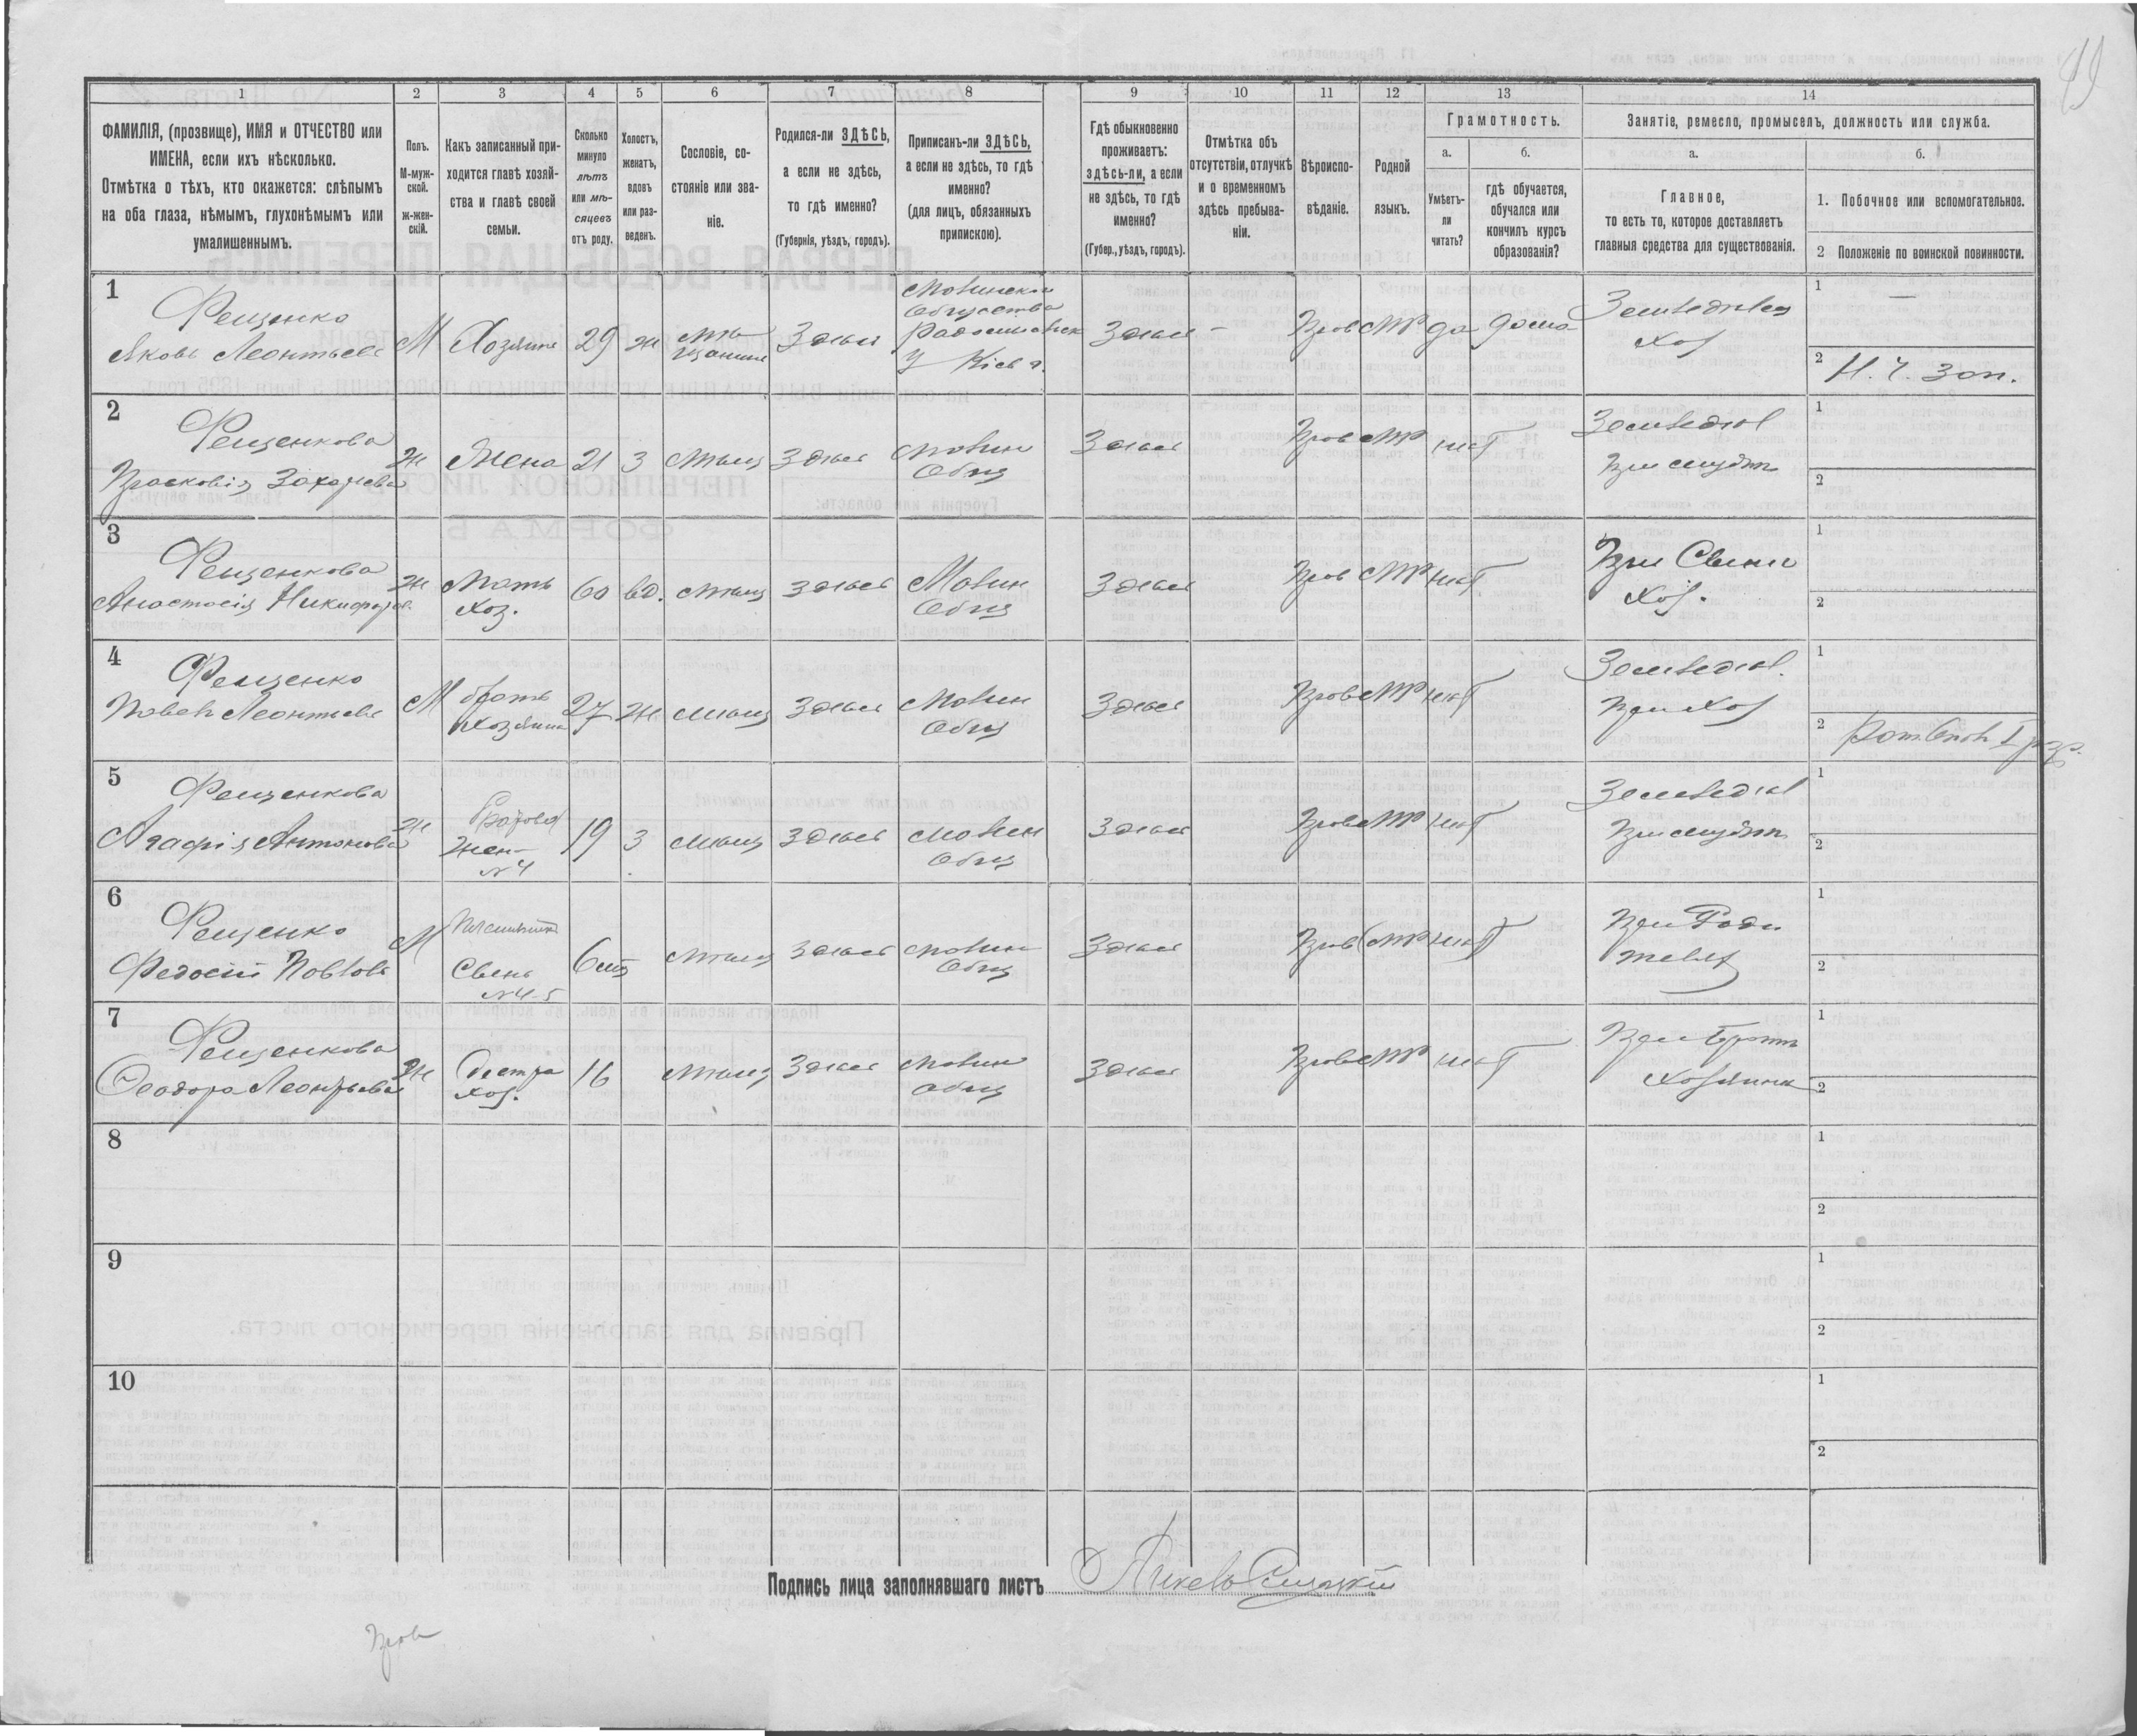 49
1
2
3
4
5
6
7
8
9
10
11
12
13
14
ФАМИЛІЯ, (прозвище), ИМЯ и ОТЧЕСТВО или
ИМЕНА, если ихъ нѣсколько.
Отмѣтка о тѣхъ, кто окажется: слѣпымъ
на оба глаза, нѣмымъ, глухонѣмымъ или
умалишеннымъ.
Полъ.
М-муж-
ской.
ж-жен-
скій.
Какъ записанный при-
ходится главѣ хозяй-
ства и главѣ своей
семьи.
Сколько
минуло
лѣтъ
или мѣ-
сяцевъ
отъ роду.
Холостъ,
женатъ,
вдовъ
или раз-
веденъ.
Сословіе, со-
стояніе или зва-
ніе.
Родился-ли ЗДѢСЬ,
а если не здѣсь,
то гдѣ именно?
(Губернія, уѣздъ, городъ).
Приписанъ-ли ЗДѢСЬ,
а если не здѣсь, то гдѣ
именно?
(для лицъ, обязанныхъ
припискою).
Гдѣ обыкновенно
проживаетъ:
здѣсь-ли, а если
не здѣсь, то гдѣ
именно?
(Губер., уѣздъ, городъ).
Отмѣтка объ
отсутствіи, отлучкѣ
и о временномъ
здѣсь пребыва-
ніи.
Вѣроиспо-
вѣданіе.
Родной
языкъ.
Грамотность.
а.
Умѣетъ-
ли
читать?
б.
гдѣ обучается,
обучался или
кончилъ курсъ
образованія?
Занятіе, ремесло, промыселъ, должность или служба.
а.
Главное,
то есть то, которое доставляетъ
главныя средства для существованія.
б.
1. Побочное или вспомогательное.
2 Положеніе по воинской повинности.
1
Фещенко
Яковъ Леонтьевъ
М
Хозяинъ
29
ж
мѣ-
щанинъ
Здѣсь
общества
У Кіев г.
Здѣсь
—
Прав
МР
да
дома
хоз
1 —
2 Н. Ч. Зап.
2
Фещенкова
Прасковія Захарьева
ж
Жена
21
З
Мѣщ
Здѣсь
Мовин
Общ
Здѣсь
Прав
МР
нѣт
Земледѣл
При мужѣ
1
2
3
Фещенкова
Анастасія Никифоров.
ж
Мать
хоз.
60
вд.
Мѣщ
Здѣсь
Мовин
Общ
Здѣсь
Прав
МР
нѣт
При Сынѣ
хоз.
1
2
4
Фещенко
Павелъ Леонтьевъ
М
братъ
хозяина
27
ж
мѣщ
Здѣсь
Мовин
Общ
Здѣсь
Прав
МР
нѣт
Земледѣл.
При Хоз
1
2 Рат. Опол. I рзр.
5
Фещенкова
Агафія Антонова
ж
жен-
№ 4
19
З
мѣщ
Здѣсь
Мовин
Общ
Здѣсь
Прав
МР
нѣт
Земледѣл
При мужѣ
1
2
6
Фещенко
Федосій Павловъ
М
Племянник
Сынъ
№ 4-5
6 мѣ
Мѣщ
Здѣсь
Мовин
Общ
Здѣсь
Прав
МР
нѣт
При Роди
теляхъ
1
2
7
Фещенкова
Феодора Леонтьева
ж
Сестра
хоз.
16
Мѣщ
Здѣсь
Мовин
общ
Здѣсь
Прав
МР
нѣт
При братѣ
хозяинѣ
1
2
8
1
2
9
1
2
10
1
2
Подпись лица заполнявшаго листъ
Прав